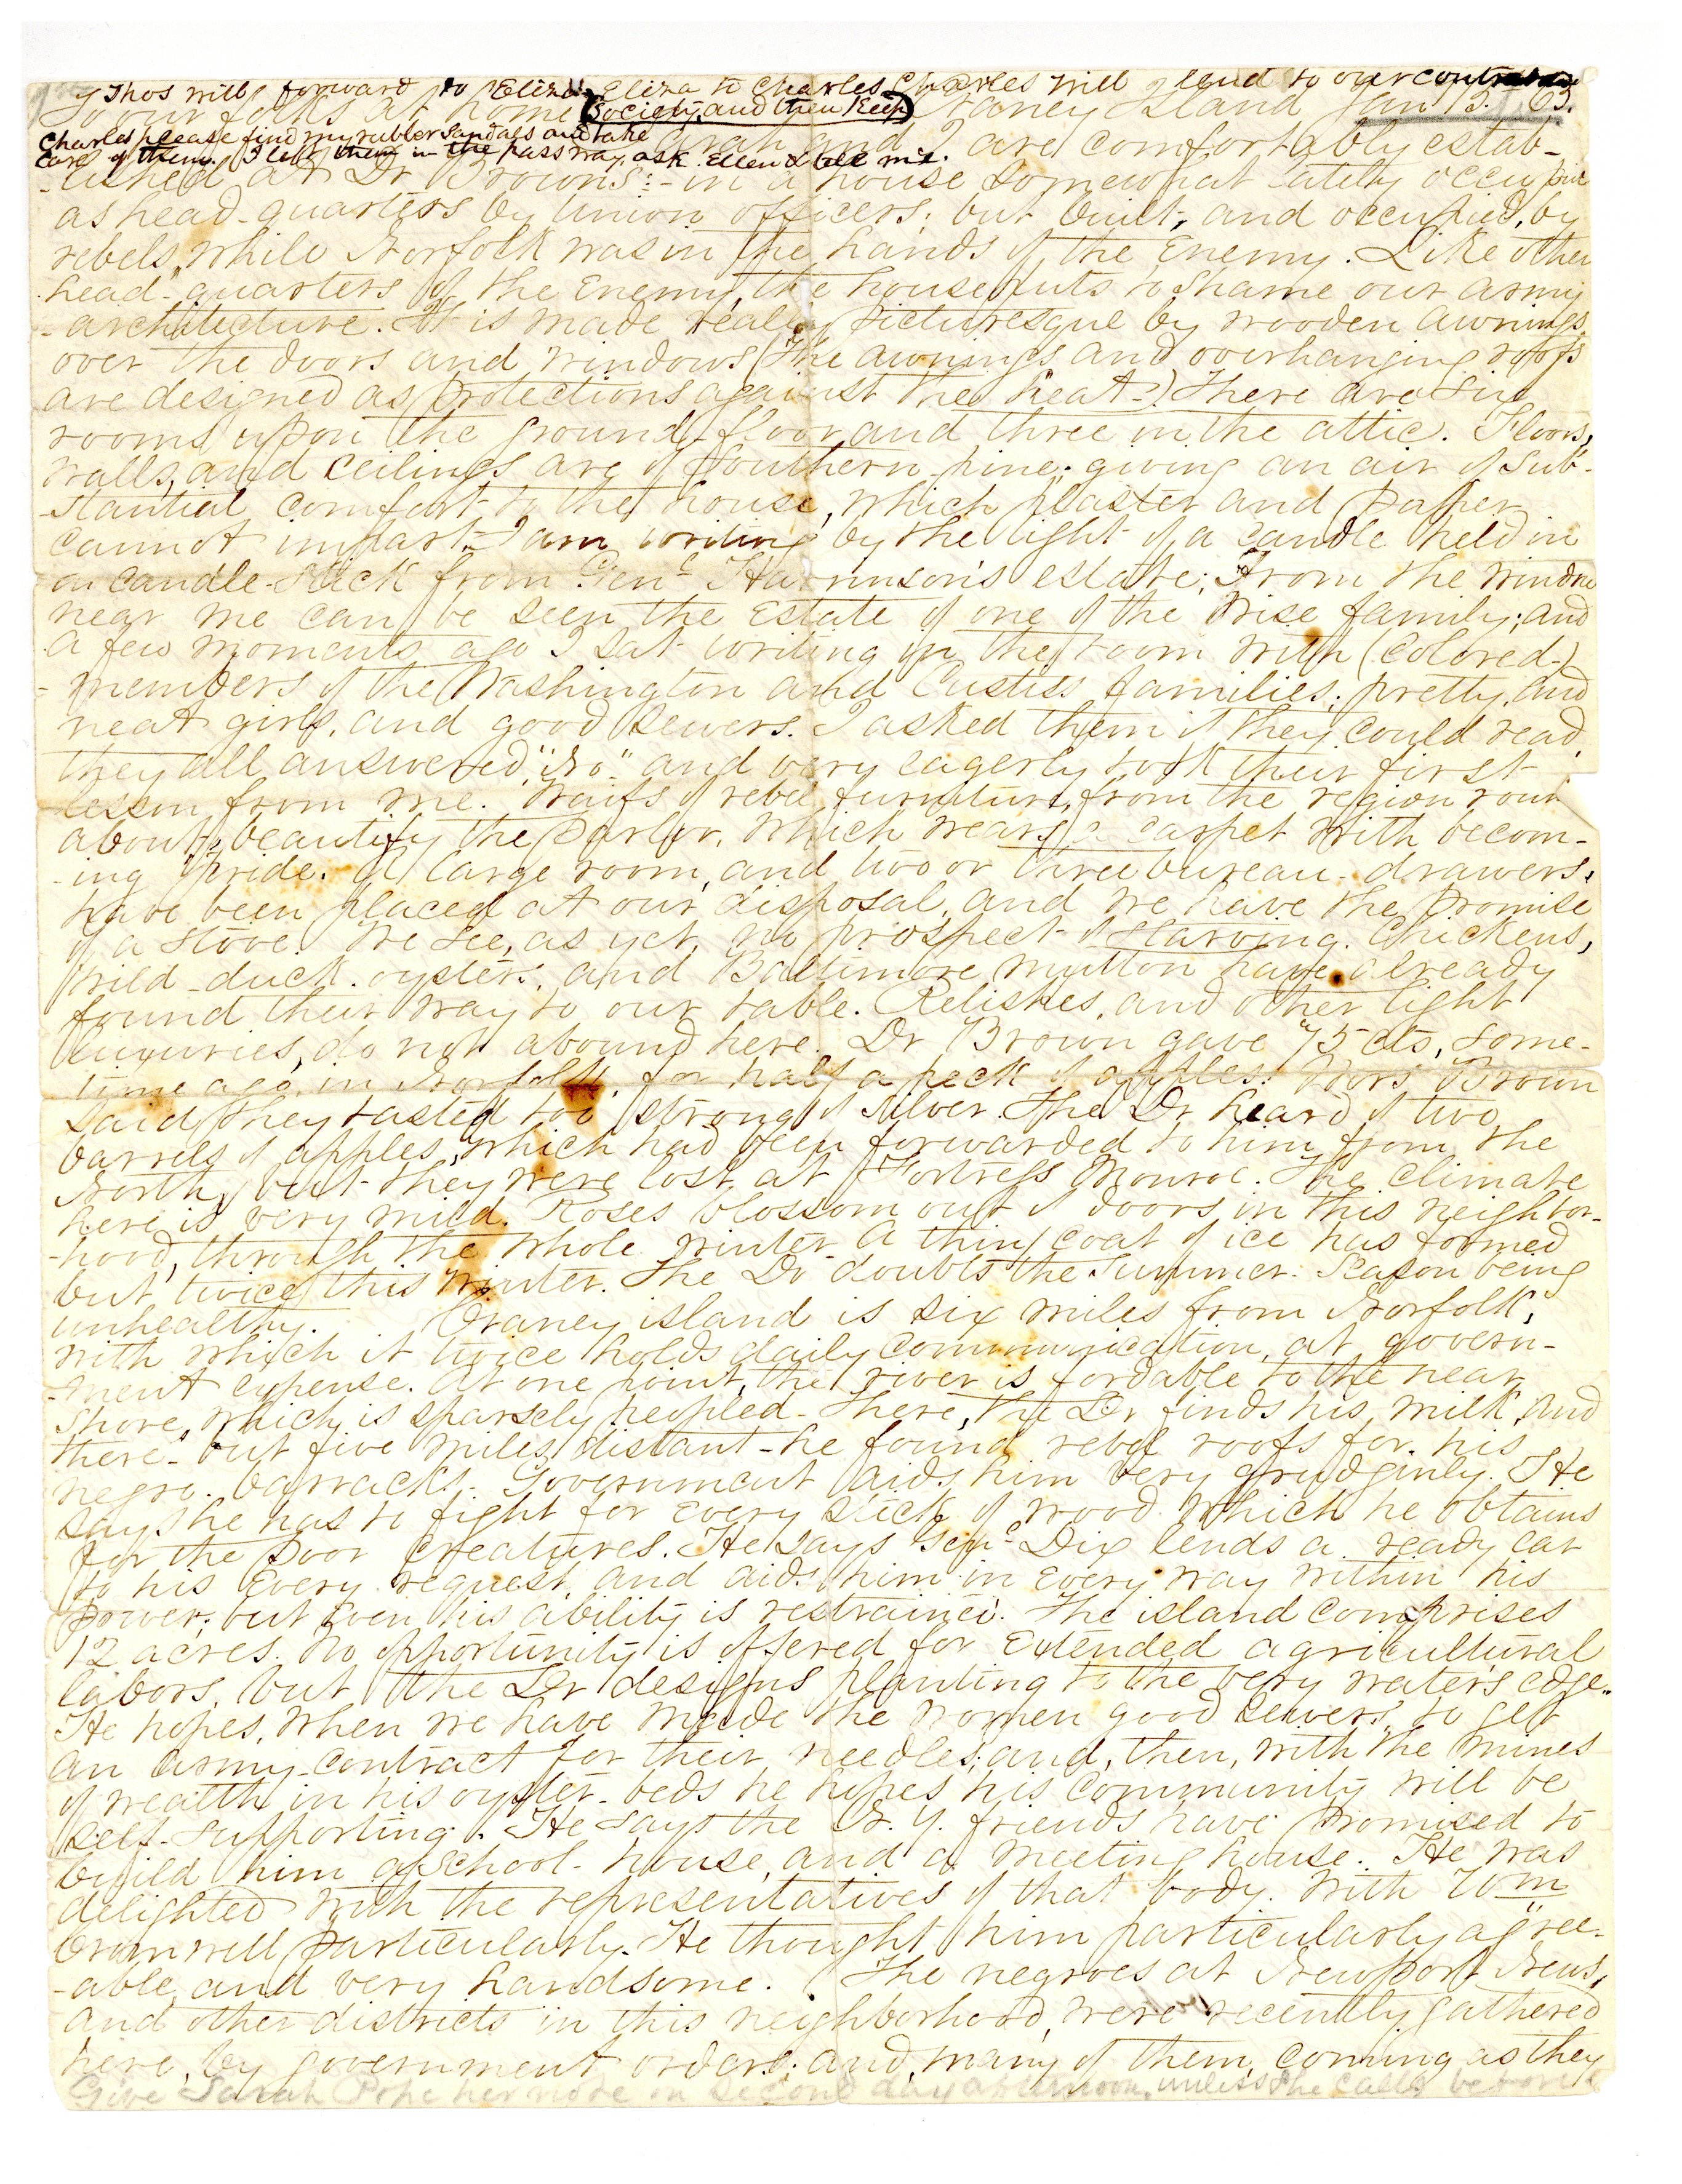 Thos will forward to Eliza. Eliza to Charles Charles will lend to our contraban
To our folks at home (Society, and then Keep) Craney Island Jan 13. 63.
Charles please find my rubber Sandals and take
care of them. I left them in the passway, ask Ellen & tell me.
Sarah and I are comfortably estab-
-lished at Dr Browns:- in a house somewhat lately occupied
as head-quarters by Union officers; but built, and occupied, by
rebels, while Norfolk was in the hands of the Enemy. Like other
head-quarters of the Enemy, the house puts to shame our army
-architecture. It is made really picturesque by wooden awnings
over the doors and windows (The awnings and overhanging roofs
are designed as protections against the heat-) There are six
rooms upon the ground-floor and three in the attic. Floors,
walls, and ceilings are of Southern-pine; giving an air of sub-
-stantial comfort to the house, which plaster and paper
cannot impart. I am writing by the light of a candle held in
a candle-stick from Genl Harrinson's estate; From the window
near me can be seen the Estate of one of the Wise family; and
a few moments ago I sat writing in the room with (colored-)
-members of the Washington and Custiss families; pretty, and
neat girls, and good sewers. I asked them if they could read,
they all answered, "No" and very eagerly took their first
lesson from me. Waifs of rebel furniture, from the region roun
about, beautify the parlor, which wears a carpet with becom-
-ing pride. A large room, and two or three bureau-drawers,
have been placed at our disposal, and we have the promise
of a stove. We see, as yet, no prospect of starving. Chickens,
wild-duck, oysters, and Baltimore mutton have already
found their way to our table. Relishes, and other light
luxuries, do not abound here. Dr Brown gave 75 cts, some-
time ago, in Norfolk, for half a peck of apples. Mrs Brown
said they tasted too strong of silver. The Dr heard of two
barrels of apples, which had been forwarded to him from the
North, but they were lost at Fortress Monroe. The climate
here is very mild. Roses blossom out of doors in this neighbor-
-hood, through the whole winter. A thin coat of ice has formed
but twice this winter. The Dr doubts the Summer-Season being
unhealthy. Craney island is six miles from Norfolk,
with which it twice holds daily communication, at govern-
-ment expense. At one point, the river is fordable to the near
shore, which is sparsely peopled- There, the Dr finds his milk, and
there- but five miles distant- he found rebel roofs for his
negro-barracks- Government aids him very grudginly. He
says he has to fight for every stick of wood which he obtains
for the poor creatures. He says Genl Dix lends a ready ear
to his every request, and aids him in every way within his
power; but even his ability is restrained. The island comprises
12 acres. No opportunity is offered for extended agricultural
labors, but the Dr designs planting to the very water's edge.
He hopes, when we have made the women good sewers, to get
an army-contract for their needles; and, then, with the mines
of wealth in his oyster-beds he hopes his community will be
self-supporting. He says the N. Y. friends have promised to
build him a school-house, and a meeting house. He was
delighted with the representatives of that body. With Wm
Cromwell particularly. He thought him particularly agree-
-able, and very handsome. The negroes at Newport News,
and other districts in this neighborhood, were recently gathered
here, by government orders; and, many of them, coming as they
Give Sarah Pope her more on second day afternoon, unless she calls before